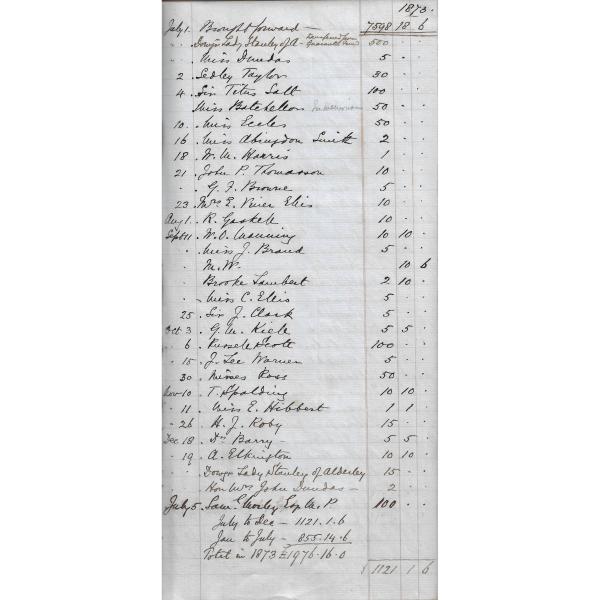 1873.
July 1. Brought forward — 7598 18 6
" . Dowgr Lady Stanley of A— transferred from Guarantee Fund 500 . .
. Miss Dundas 5 . .
2 . Sedley Taylor 30 . .
4 . Sir Titus Salt 100 . .
Miss Batchellor 50 . .
10 . Miss Eccles 50 . .
16 . Miss Abingdon Smith 2 . .
18 . W. M. Harris 1 . .
21 . John P. Thomasson 10 . .
. G. F. Browne 5 . .
23 . Mrs E. Viner Ellis 10 . .
Aug 1. R. Gaskell 10 . .
Sept 11. W. O. Manning 10 10 .
. Miss J. Brand 5 . .
. M. W. 10 6
Brooke Lambert 2 10 .
. Miss C. Ellis 5 . .
25 . Sir J. Clark 5 . .
Oct 3 . G. M. Kiell 5 5 .
6 . Russell Scott 100 . .
15 . J. Lee Warner 5 . .
30 . Misses Ross 50 . .
Nov 10 . T. Spalding 10 10 .
. 11 . Miss E. Hibbert 1 1 .
. 26 . H. J. Roby 15 . .
Dec 18 . Dr Barry — 5 5 .
. 19 . A. Elkington 10 10 .
Dowgr Lady Stanley of Alderley 15 . .
Hon Mrs John Dundas — 2 . .
July 5. Saml Morley Esq M.P. 100 . .
July to Dec — 1121.1.6
Jan to July — 855.14.6
Total in 1873 £1976.16.0
£ 1121 1 6